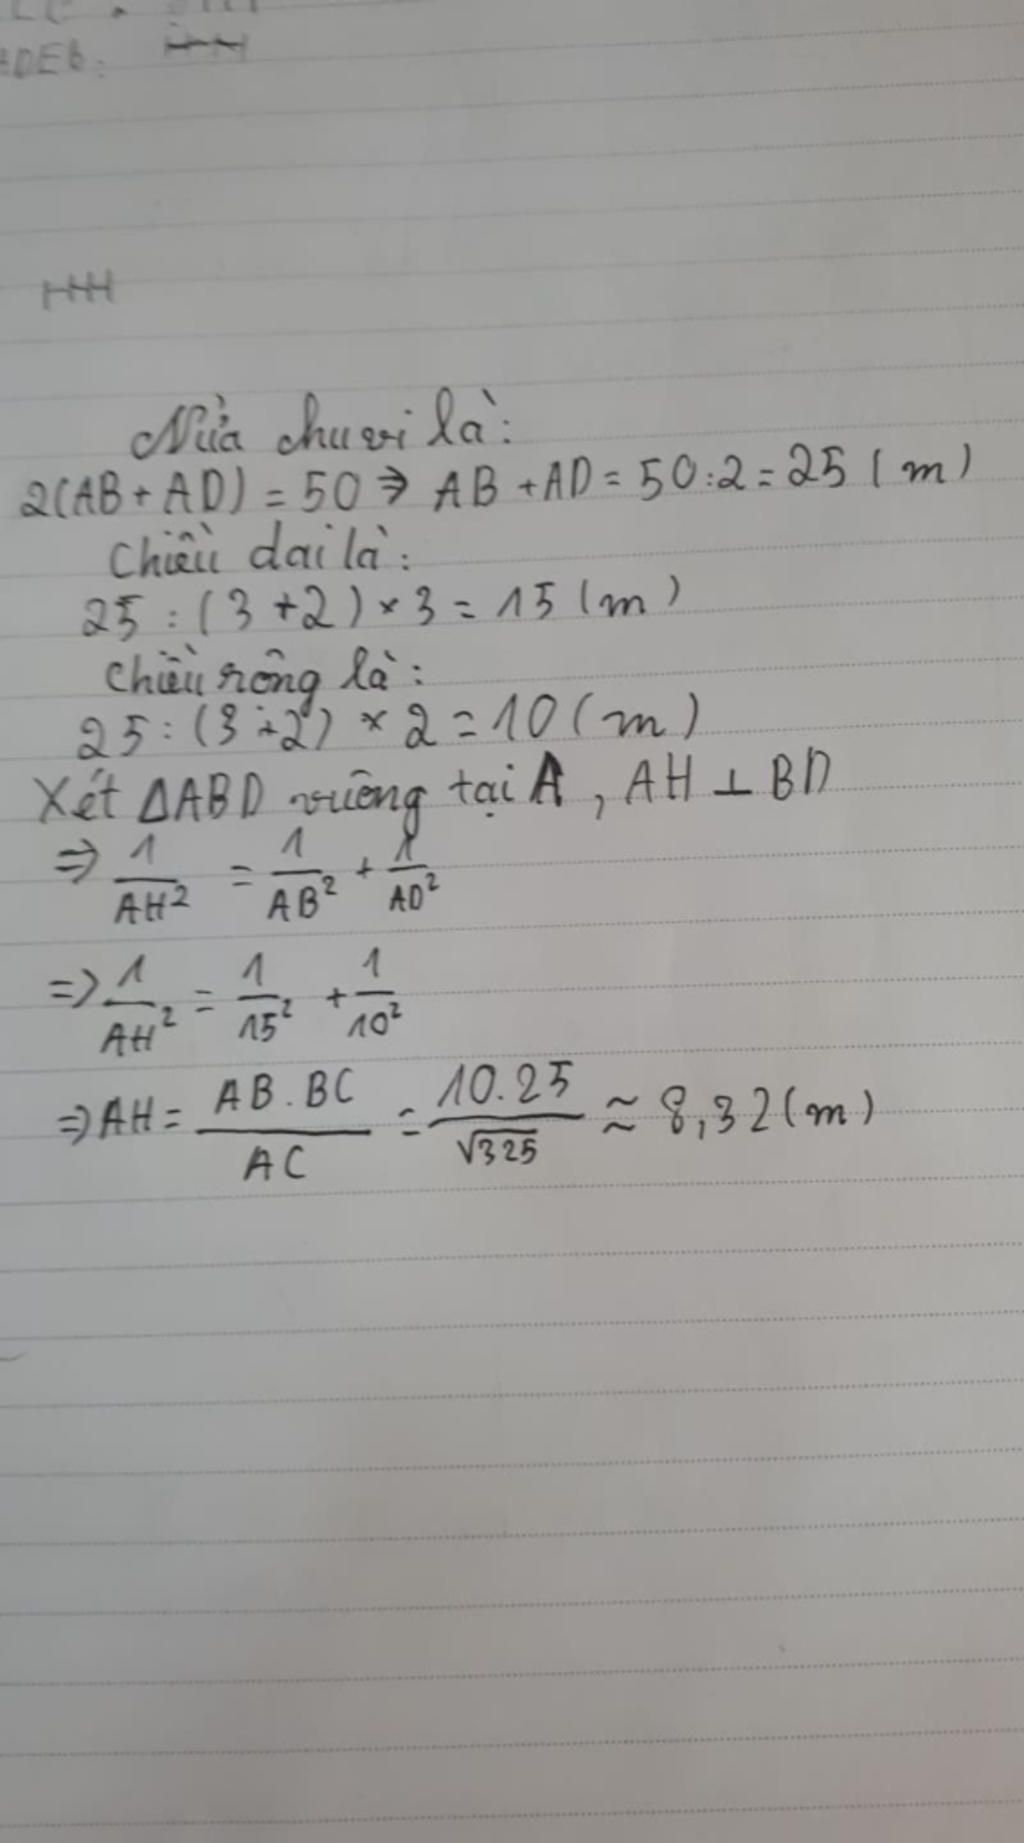 ADEB:
Nửa chu vi là:
2(AB + AD) = 50 ⇒ AB + AD = 50:2 = 25 (m)
Chiều dai là:
25 : (3 + 2) × 3 = 15 (m)
Chiều rông là:
25 : (3 + 2) × 2 = 10 (m)
Xét ΔABD vuông tại A, AH ⊥ BD
⇒ 1/AH² = 1/AB² + 1/AD²
⇒ 1/AH² = 1/15² + 1/10²
⇒ AH = AB.BC/AC = 10.25/√325 ≈ 8,32 (m)